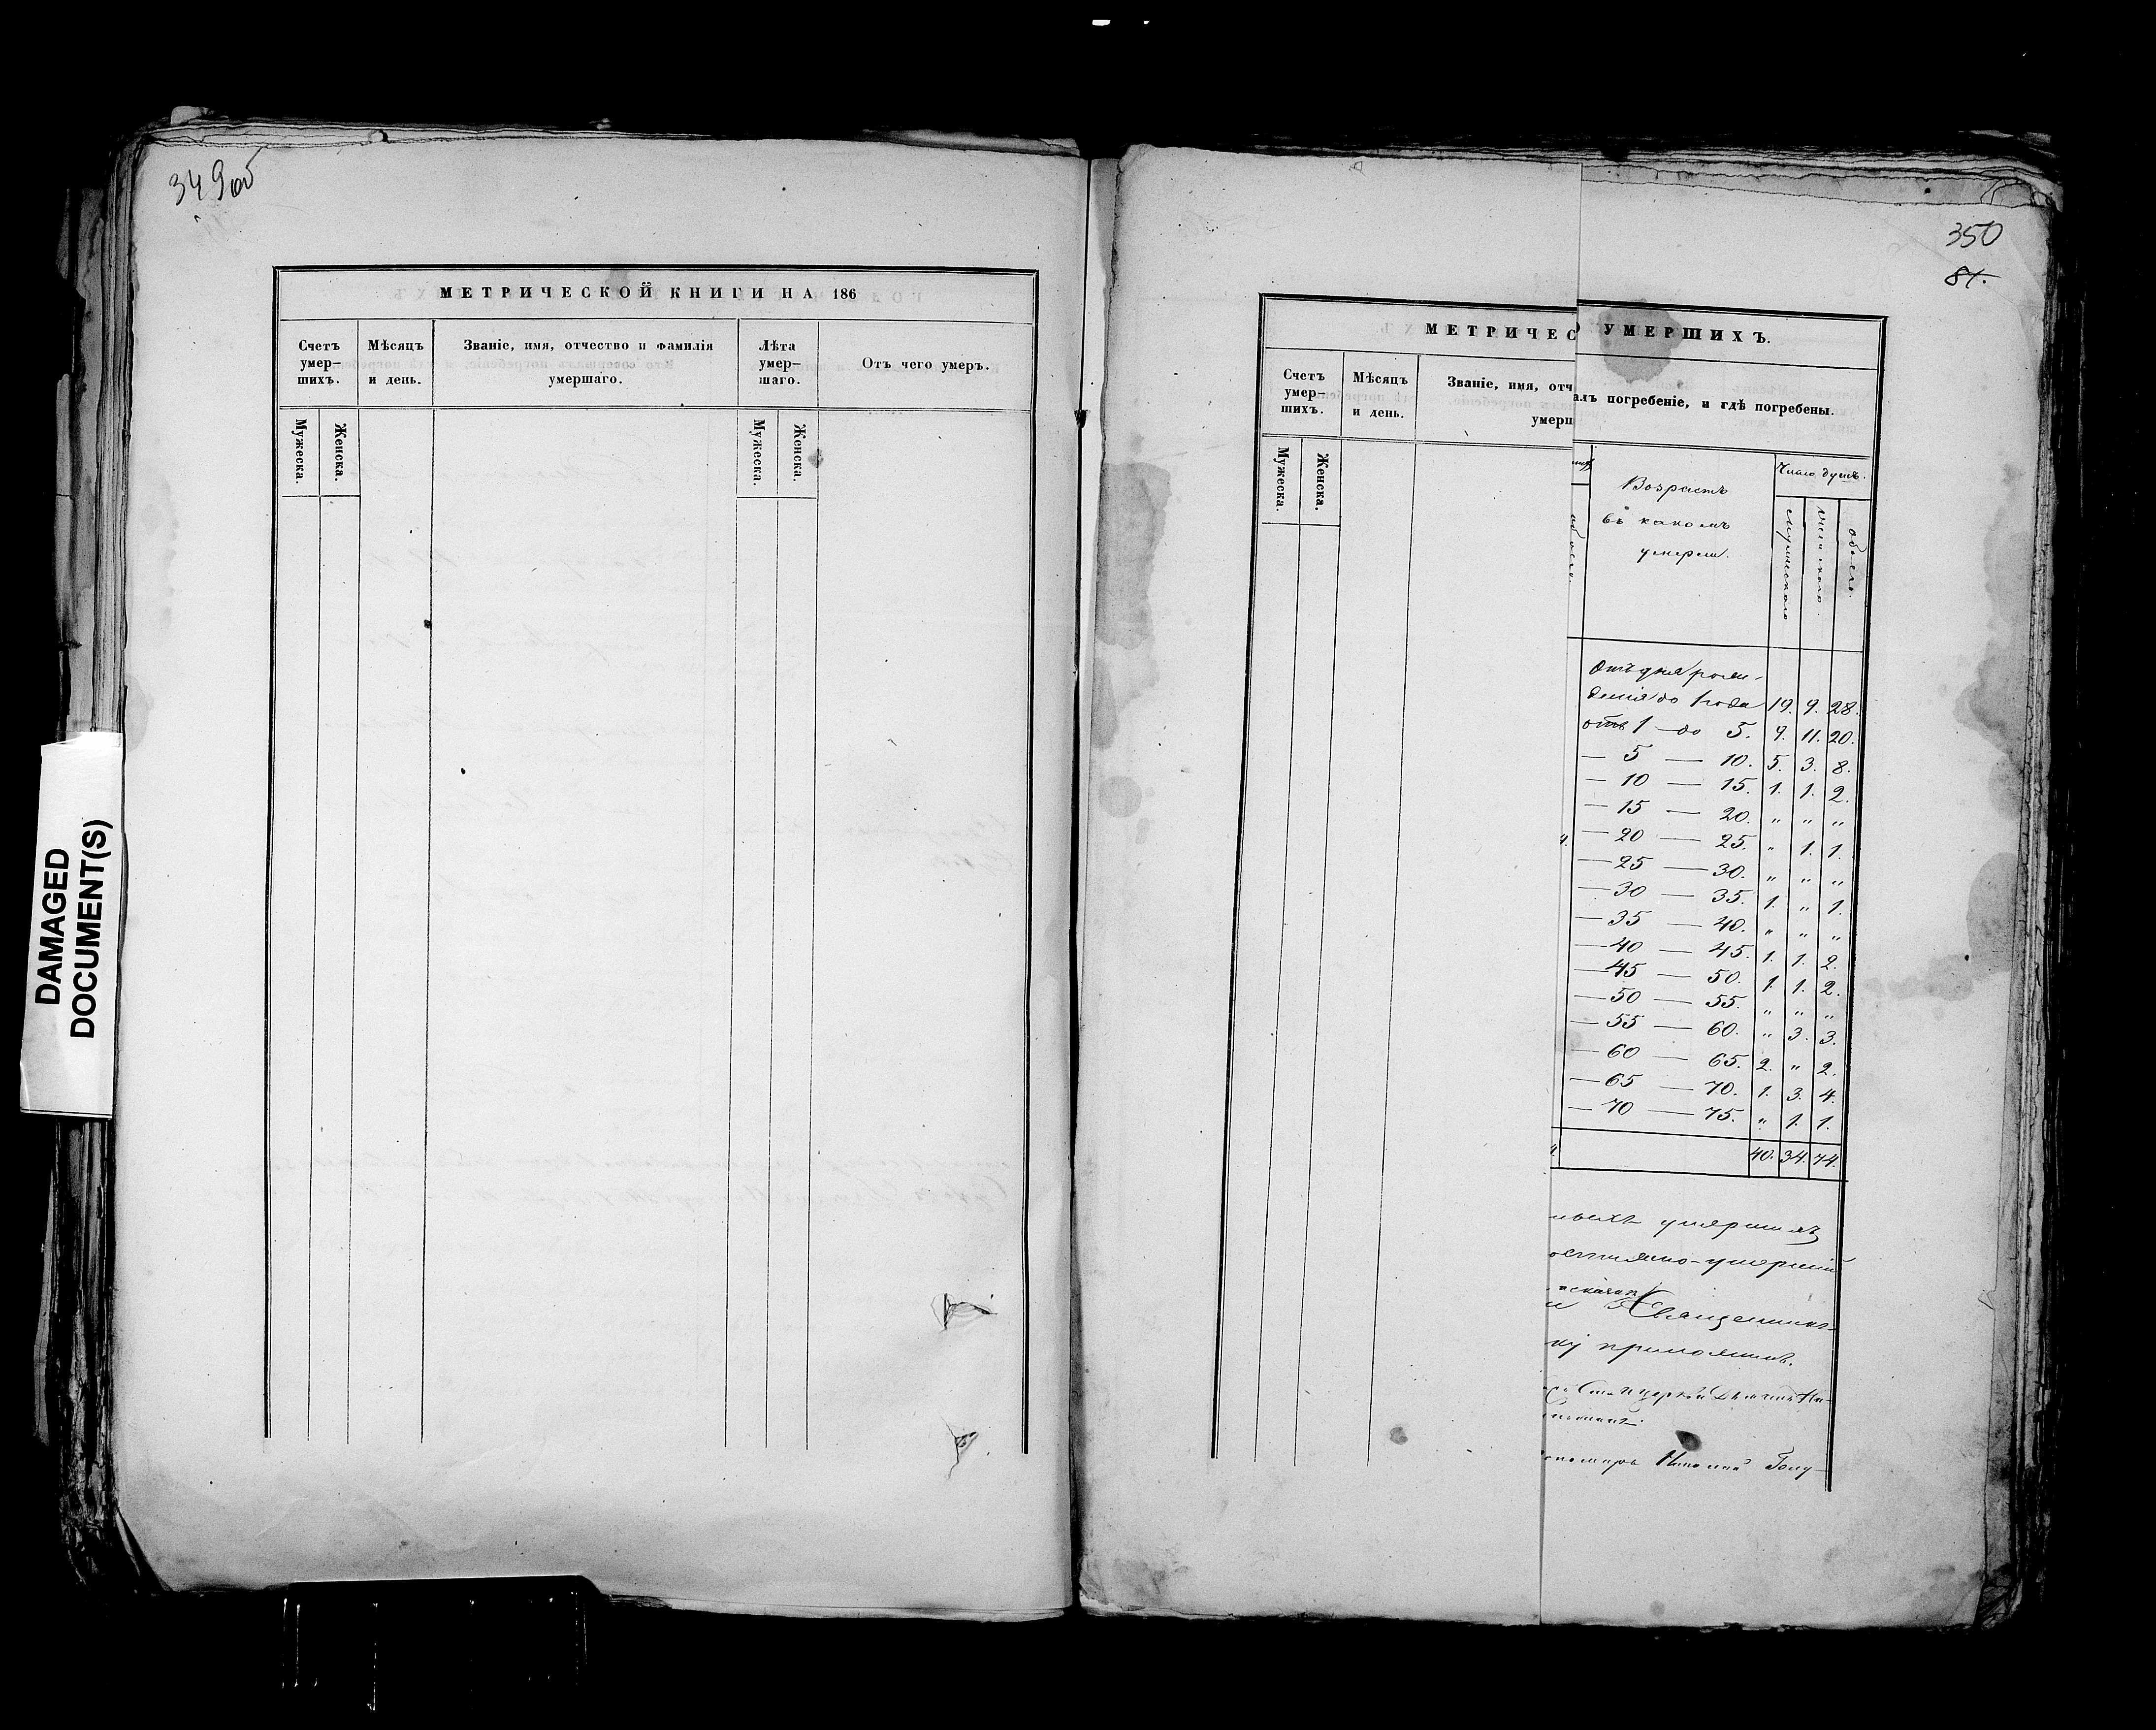 DAMAGED
DOCUMENT(S)
349об
МЕТРИЧЕСКОЙ КНИГИ НА 186
Счетъ умер-
шихъ.
Мѣсяцъ
и день.
Званіе, имя, отчество и фамилія
умершаго.
Лѣта
умер-
шаго.
Отъ чего умеръ.
Мужеска.
Женска.
Мужеска.
Женска.
350
МЕТРИЧЕС
УМЕРШИХЪ.
Счетъ
умер-
шихъ.
Мѣсяцъ
и день.
Званіе, имя, отч
умерш
алъ погребеніе, и гдѣ погребены.
Мужеска.
Женска.
Возрастъ
въ какомъ
умерли.
Число душъ.
мужескаго
женскаго.
обоего.
Отъ дня рож-
денія до 1 года 19. 9. 28.
отъ 1 — до 5. 9. 11. 20.
— 5 — 10. 5. 3. 8.
— 10 — 15. 1. 1. 2.
— 15 — 20. „ „ „
— 20 — 25. „ 1. 1.
— 25 — 30. „ „ „
— 30 — 35. 1. „ 1.
— 35 — 40. „ „ „
— 40 — 45. 1. 1. 2.
— 45 — 50. 1. 1. 2.
— 50 — 55. „ „ „
— 55 — 60. „ 3. 3.
— 60 — 65. 2. „ 2.
— 65 — 70. 1. 3. 4.
— 70 — 75. „ 1. 1.
40. 34. 74.
умершихъ
умершій
Священник
приложилъ.
Николай Голу-